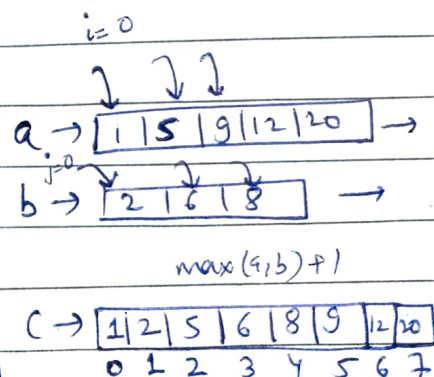 i=0
a → 1 | 5 | 9 | 12 | 20 →
j=0
b → 2 | 6 | 8 →
max(a,b)+1
C → 1 | 2 | 5 | 6 | 8 | 9 | 12 | 20
0 1 2 3 4 5 6 7